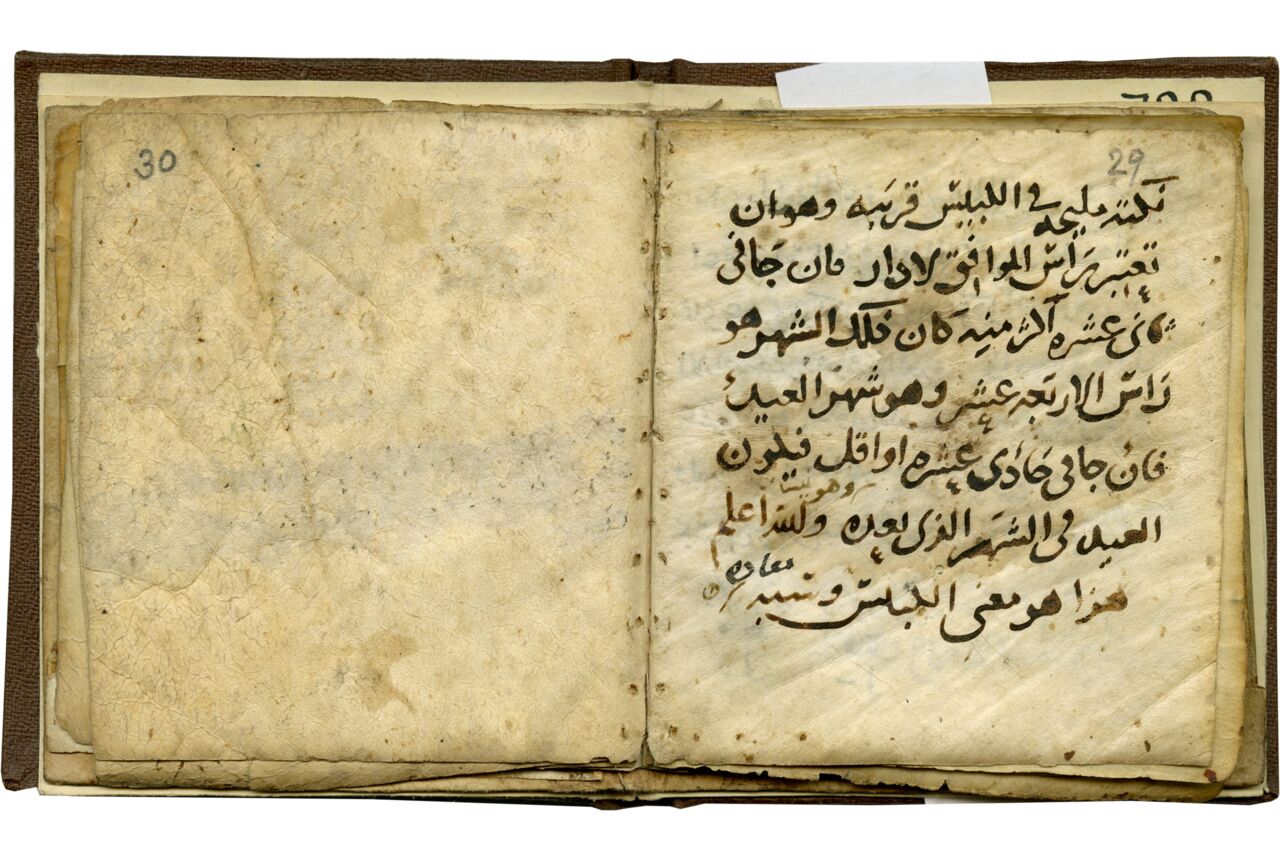 29
نكته مليحه في الكبيس قريبه وهو ان
تعتبر براس الموافق لادار فان جا في
ثاني عشره اكثر منه كان ذلك الشهر هو
راس الاربعه عشر وهو شهر العيد
فان جا في حادي عشره او اقل فيكون
العيد في الشهر الذي بعده والله اعلم
هذا هو معنى الكبيس وشبه
30